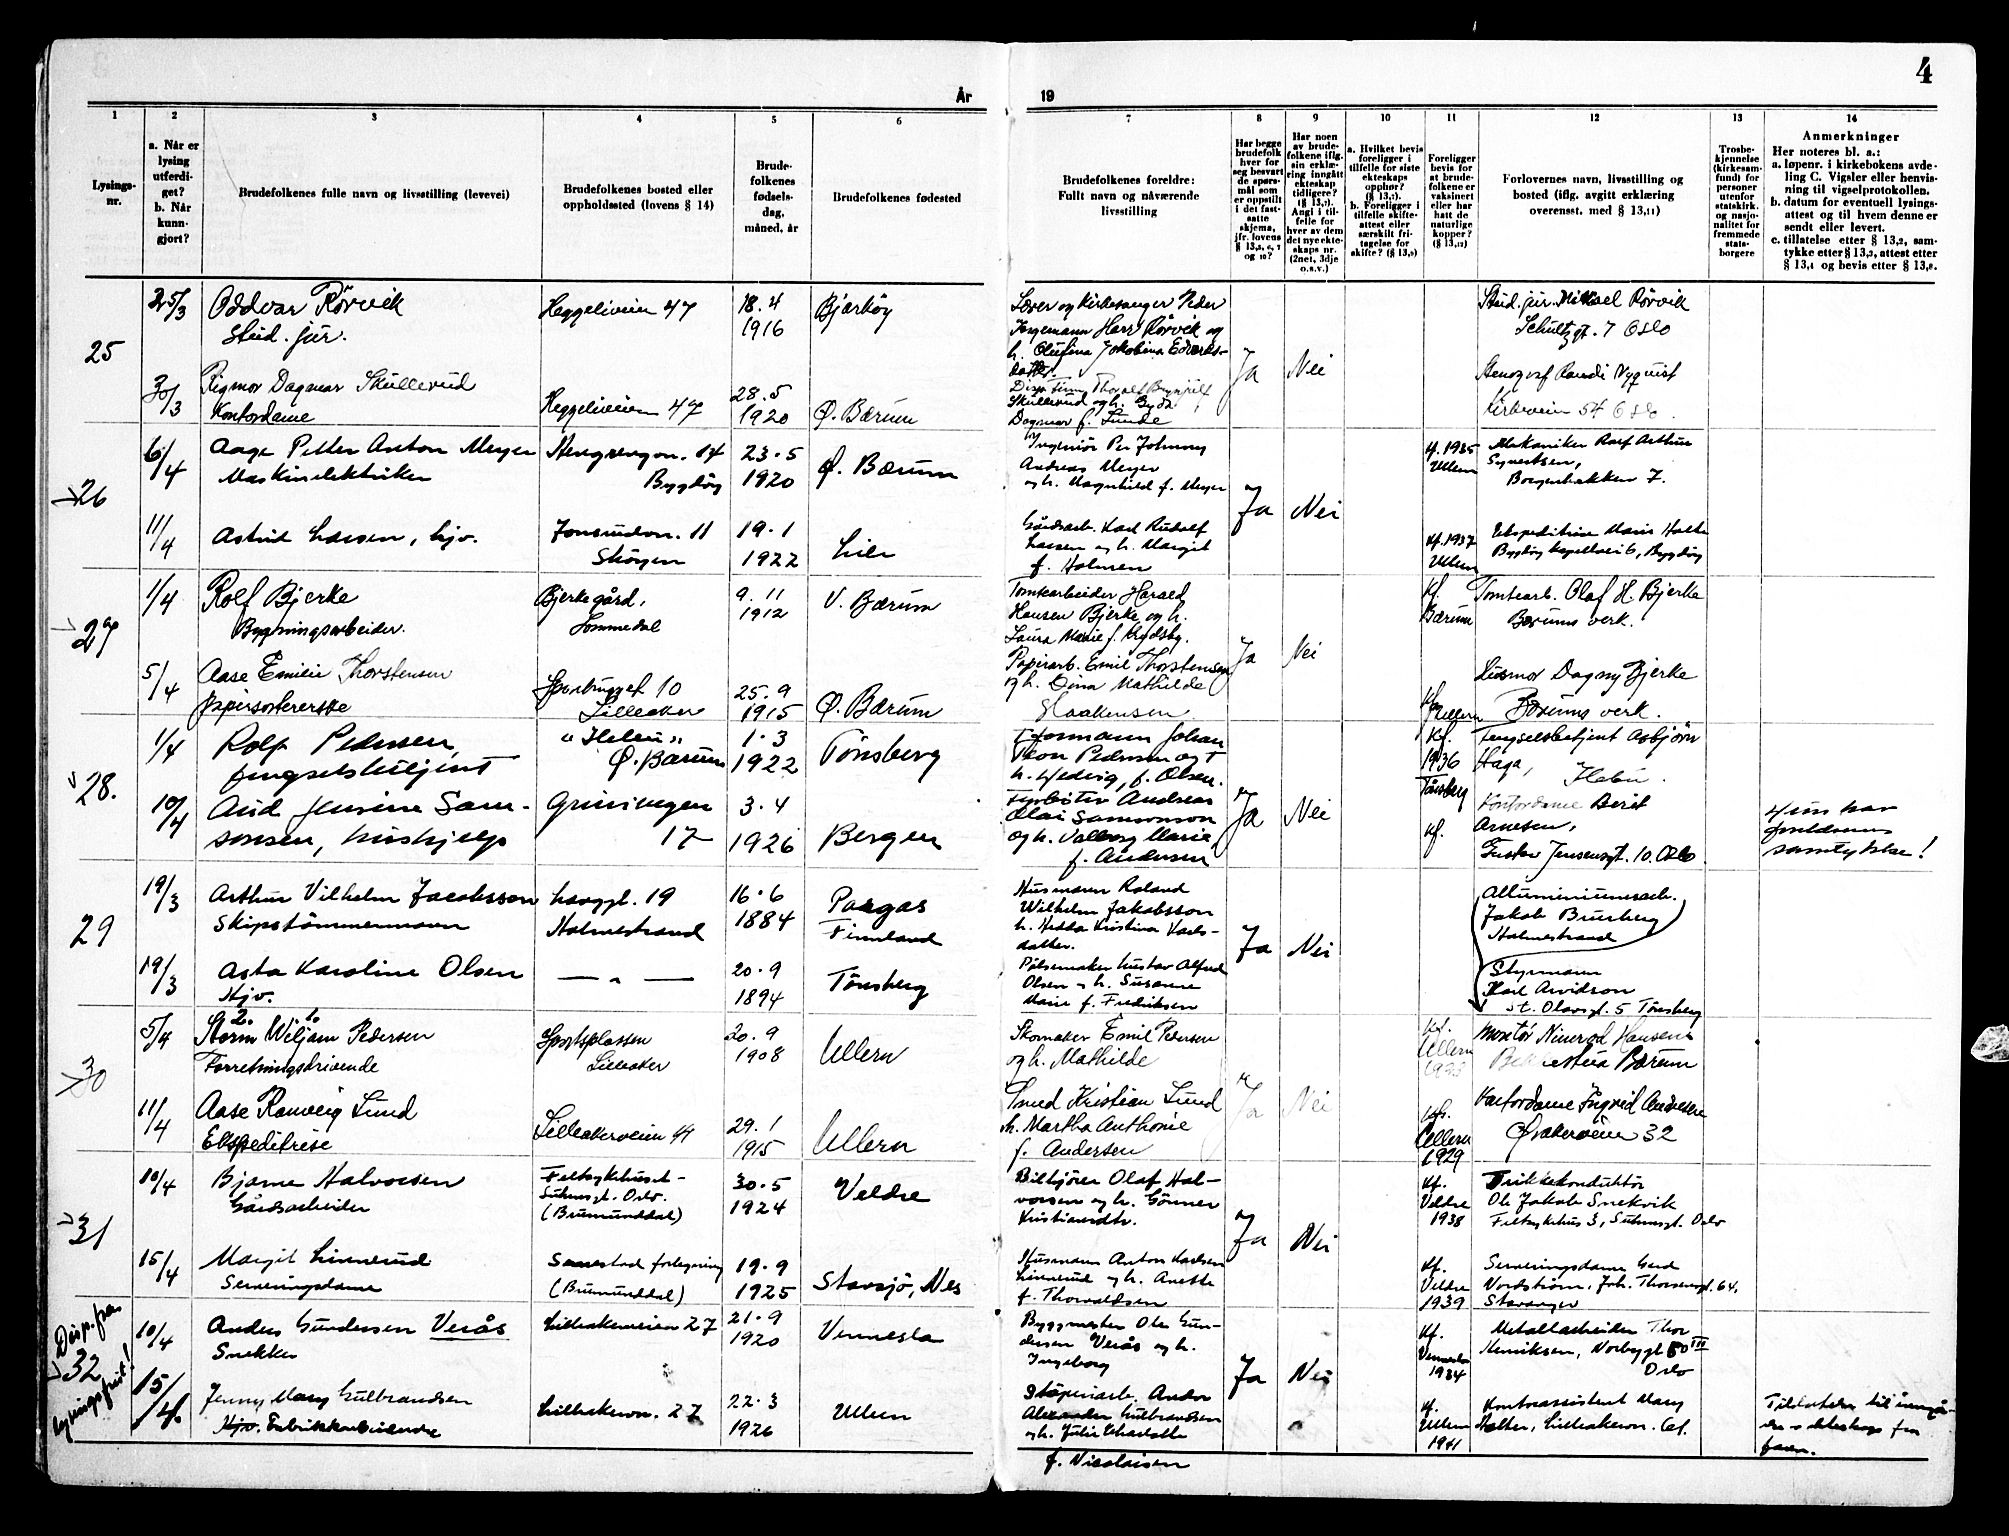 4
År
19
1
2
3
4
5
6
7
8
9
10
11
12
13
14
Lysings-
nr.
a. Når er
lysing
utferdi-
get?
b. Når
kunn-
gjort?
Brudefolkenes fulle navn og livsstilling (levevei)
Brudefolkenes bosted eller
oppholdssted (lovens § 14)
Brude-
folkenes
fødsels-
dag,
måned, år
Brudefolkenes fødested
Brudefolkenes foreldre:
Fullt navn og nåværende
livsstilling
Har begge
brudefolk
hver for
seg besvart
de spørs-
mål som
er oppstilt
i det fast-
satte
skjema,
jfr. lovens
§ 13,5, 6, 7
og 10?
Har noen
av brude-
folkene iflg.
sin erklæ-
ring inngått
ekteskap
tidligere?
(§ 13,7).
Angi i til-
felle for
hver av dem
det nye ekte-
skaps nr.
(2net, 3dje
o.s.v.)
a. Hvilket bevis
foreligger i
tilfelle for siste
ekteskaps
opphør?
(§ 13,7).
b. Foreligger i
tilfelle skifte-
attest eller
særskilt fri-
tagelse for
skifte? (§ 13,9)
Foreligger
bevis for
at brude-
folkene er
vaksinert
eller har
hatt de
naturlige
kopper?
(§ 13,12)
Forlovernes navn, livsstilling og
bosted (iflg. avgitt erklæring
overensst. med § 13,11)
Trosbe-
kjennelse
(kirkesam-
fund) for
personer
utenfor
statskirk.
og nasjo-
nalitet for
fremmede
stats-
borgere
Anmerkninger
Her noteres bl. a.:
a. løpenr. i kirkebokens avde-
ling C. Vigsler eller henvis-
ning til vigselprotokollen.
b. datum for eventuell lysings-
attest og til hvem denne er
sendt eller levert.
c. tillatelse etter § 13,2, sam-
tykke etter § 13,3, attest etter
§ 13,4 og bevis etter § 13,8.
25
25/3 Oddvar Rørvik Heggeliveien 47 18.4 Bjarkøy
Stud. jur. 1916
Lærer og kirkesanger Peder
Jørgemann Harr Rørvik og
h. Olufina Jakobina Edvards-
datter.
Ja Nei
Stud. jur. Mikael Rørvik
Schultzgt. 7 Oslo
30/3 Rigmor Dagmar Skullerud 28.5
Kontordame Heggeliveien 47 1920 Ø. Bærum
Disp. Finn Thoralf
Skullerud og h.
Dagmar f. Lunde
Randi Nyquist
Kirkeveien 54 Oslo.
26
6/4 Aage Petter Anton Meyer 14 23.5 Ø. Bærum
Maskinelektriker Bygdøy 1920
Ingeniør Per Johnny
Andreas Meyer
og h. Magnhild f. Meyer
Ja Nei
kf. 1935
Ullern
Mekaniker Rolf Arthur
Syvertsen,
Borgenbakken 7.
11/4 Astrid Larsen, hjv. Jonsrudvn. 11 19.1 Lier
Skøyen 1922
Gårdsarb. Karl Rudolf
Larsen og h. Margit
f. Holmen
kf. 1937
Ullern
Ekspeditrise Maris Holth
Bygdøy kapellvei 6, Bygdøy
27
1/4 Rolf Bjerke Bjerke gård, 9.11 V. Bærum
Bygningsarbeider. Lommedal 1912
Tomtearbeider Harald
Hansen Bjerke og h.
Laura Marie f.
Ja Nei
kf.
Bærum
Tomtearb. Olaf H. Bjerke
Bærums verk.
5/4 Aase Emilie Thorstensen 10 25.9
papirsortererske Lilleaker 1915 Ø. Bærum
Papirarb. Emil Thorstensen
og h. Dina Mathilde
Haakensen
kf. Ullern
Dagny Bjerke
Bærums verk.
28.
1/4 Rolf Pedersen, "Ilebu" 1.3 Tønsberg
fengselsbetjent Ø. Bærum 1922
Formann Johan
Teon Pedersen og
h. Hedvig, f. Olsen.
Ja Nei
kf.
1936
Tønsberg
Fengselsbetjent Asbjørn
Haga, Ilebu.
10/4 Aud Jensine Sam- Griniveyen 3.4
sonsen, hushjelp 17 1926 Bergen
Fyrbøter Andreas
Olai Samsonson
og h. Valborg Marie
f. Andersen
kf.
Kontordame Berit
Arnesen,
Gustav Jensensgt. 10. Oslo
Hun har
foreldrenes
samtykke!
29
19/3 Arthur Vilhelm Jacobsson Langgt. 19 16.6 Pargas
Skipstømmermann Holmestrand 1884 Finnland
Husmann Roland
Wilhelm Jakobsson
h. Hedda Kristina Karls-
datter.
Ja Nei
Alluminiumsarb.
Jakob Brusberg
Holmestrand
19/3 Asta Karoline Olsen — " — 20.9 Tønsberg
Hjv. 1894
Pølsemaker Gustav Alfred
Olsen og h. Susanne
Marie f. Fredriksen
Styrmann
Karl Arvidson
St. Olavsgt. 5 Tønsberg
30
2. 1.
5/4 Storm Wiljam Pedersen Sportsplassen 20.9 Ullern
Forretningsdrivende Lilleaker 1908
Skomaker Emil Pedersen
og h. Mathilde
Ja Nei
kf.
Ullern
Montør Nimrod Hansen
Bekkestua Bærum
11/4 Aase Ranveig Lund Lilleakerveien 29.1 Ullern
Ekspeditrise 1915
Smed Kristian Lund
h. Martha Anthonie
f. Andersen
kf.
Ullern
1929
Kontordame Ingrid Andresen
Øvrakerveien 32
31
10/4 Bjarne Halvorsen Feltsykehuset - 30.5 Veldre
Gårdsarbeider Suhmsgt. Oslo. 1924
(Brumunddal)
Bilkjører Olaf Hal-
vorsen og h. Gunner
Kristiansdtr.
Ja Nei
kf.
Veldre
1938
Trikkekonduktør
Ole Jakob Snekvik
Feltsykehus 3, Suhmsgt. Oslo
15/4 Margit Linnerud forlegning 19.9
Serveringsdame (Brumunddal) 1925 Stavsjø, Nes
Husmann Anton Karlsen
Linnerud og h. Anette
f. Thorvaldsen
kf.
Veldre
1939
Serveringsdame Gerd
Nordstrøm, Joh. Thorsensgt. 64,
Stavanger
Disp. fra
lysingsfrist!
32
10/4 Anders Gundersen Verås Lilleakerveien 27 21.9 Vennesla
Snekker 1920
Byggmester Ole Gun-
dersen Verås og h.
Ingeborg
Ja Nei
kf.
Vennesla
1934
Metallarbeider Thor
Henriksen, Norbygt. 50 III
Oslo
15/4. Jenny Mary Gulbrandsen Lilleakervn. 27 22.3 Ullern
Hjv. Fabrikkarbeiderske 1926
Støperiarb. Andor
Alexander Gulbrandsen
og h. Julie Charlotte
f. Nicolaisen
kf.
Ullern
1941
Kontorassistent Mary
Holter, Lilleakervn.
Tillatelse til inngå-
else av ekteskap fra
faren.